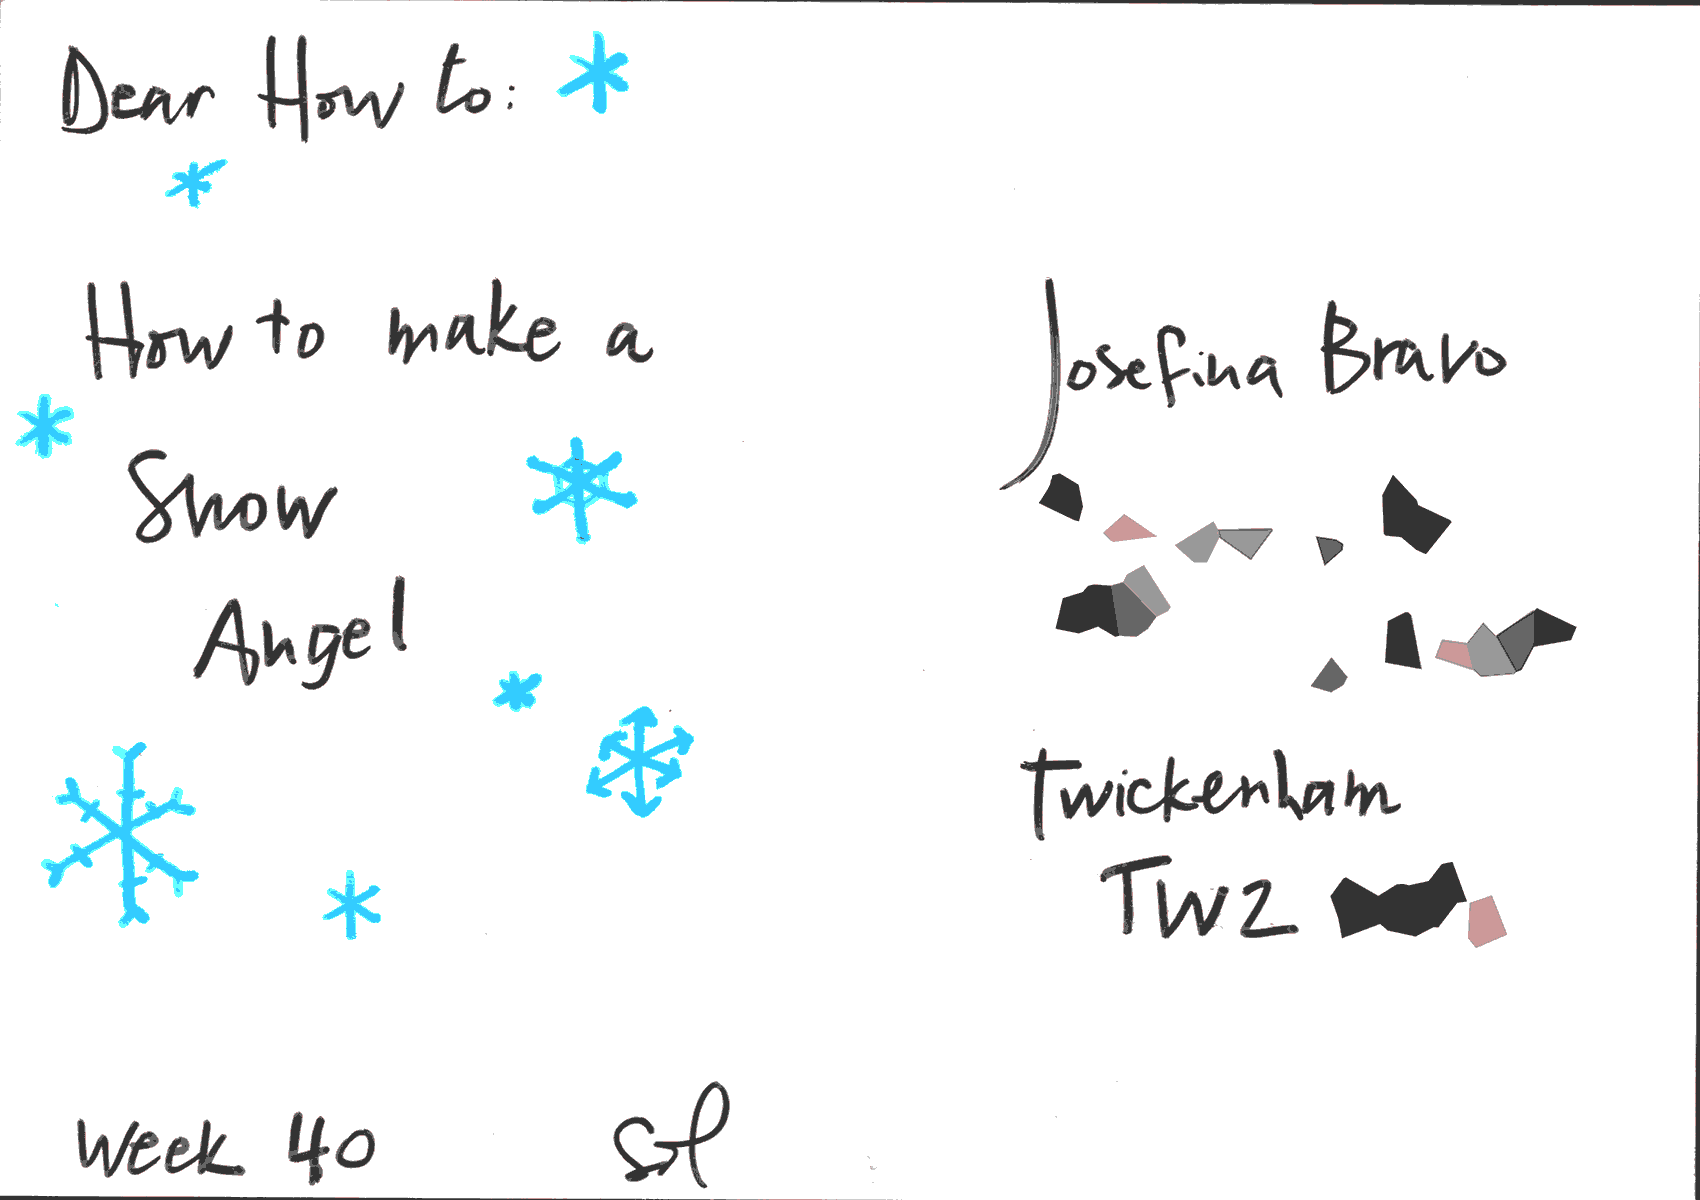 Dear How to:
How to make a
Snow
Angel
Week 40
Josefina Bravo
Twickenham
TW2